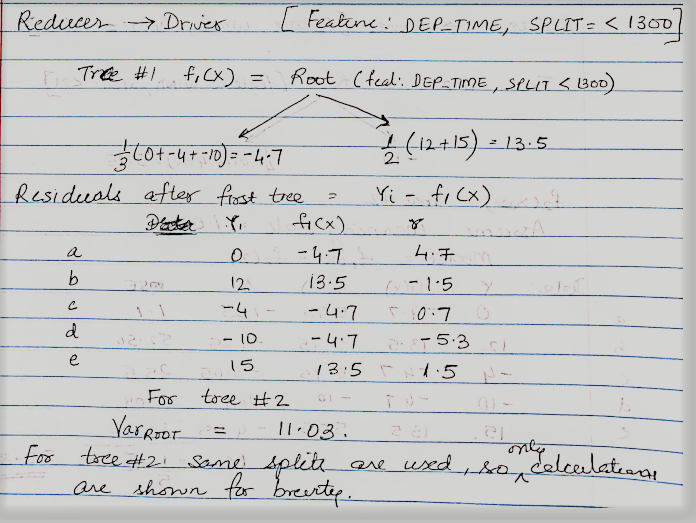 Reducer → Driver [Feature: DEP_TIME, SPLIT = < 1300]
Tree #1 f₁(x) = Root (feat: DEP_TIME, SPLIT < 1300)
1/3 (0+-4+-10) = -4.7 1/2 (12+15) = 13.5
Residuals after first tree = Yi - f₁(x)
Yi f₁(x) r
a 0 -4.7 4.7
b 12 13.5 -1.5
c -4 -4.7 0.7
d -10 -4.7 -5.3
e 15 13.5 1.5
For tree #2
Var ROOT = 11.03.
For tree #2 same splits are used, so only calculations
are shown for brevity.